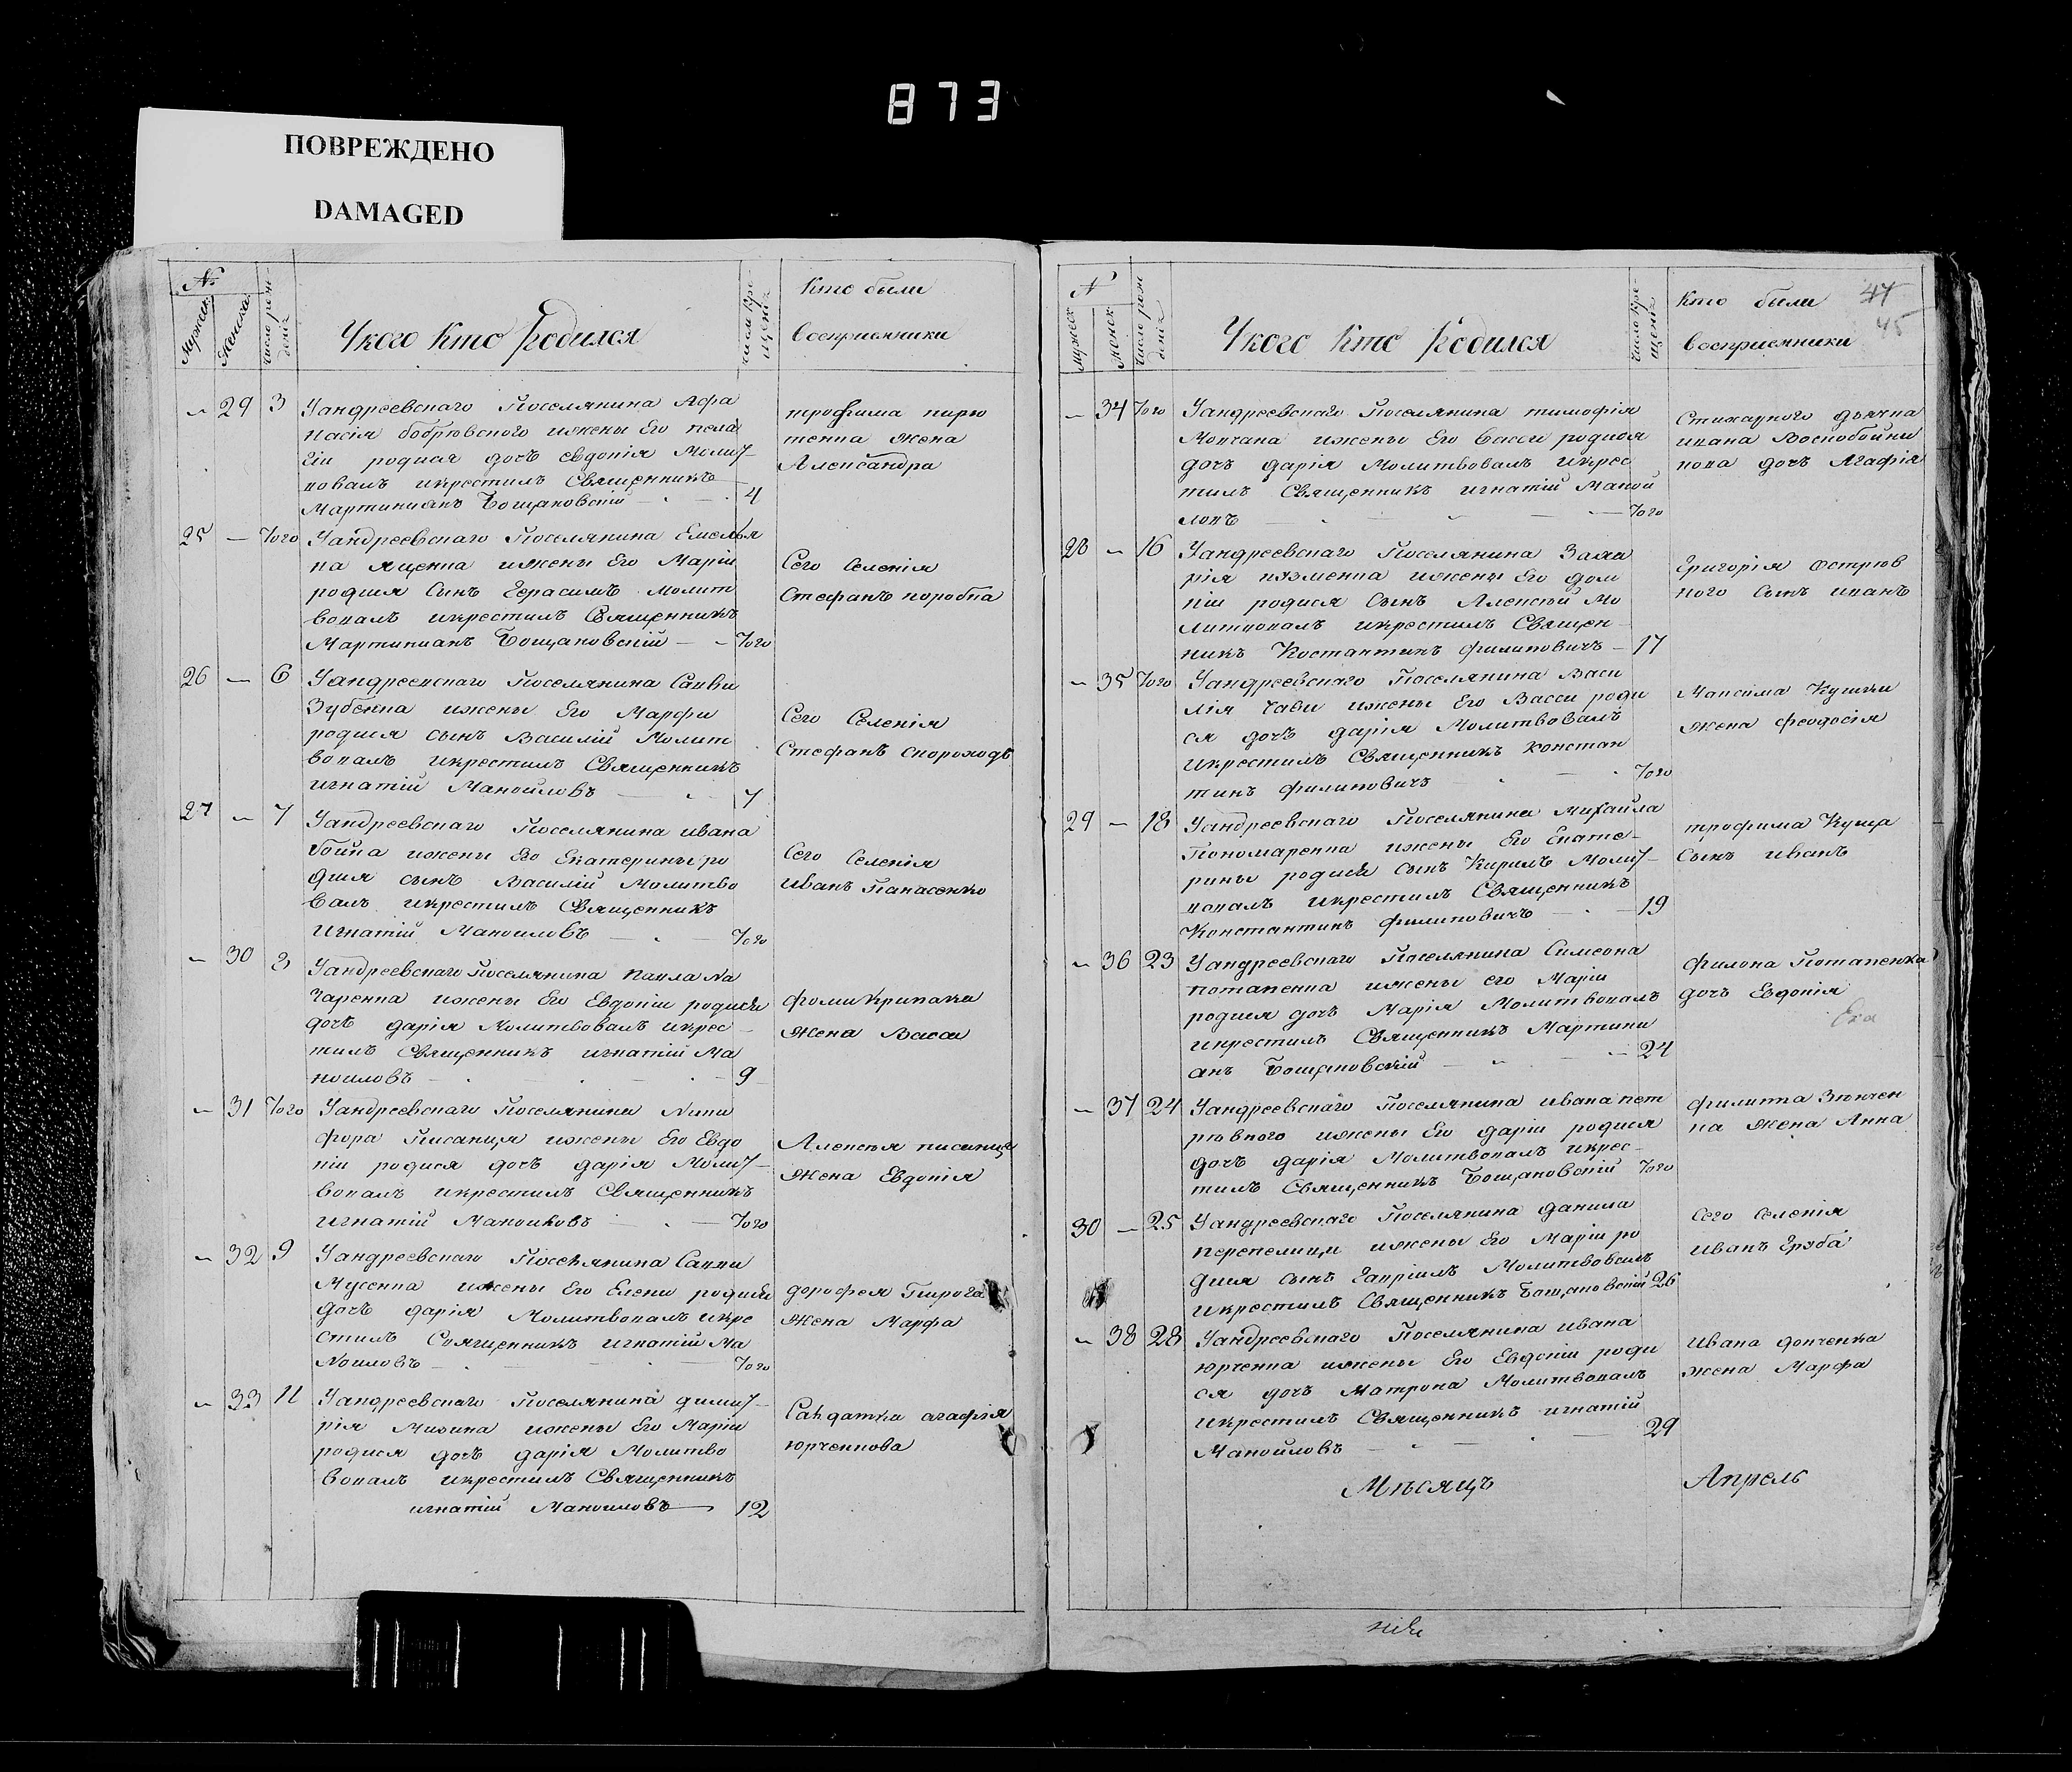 873
ПОВРЕЖДЕНО
DAMAGED
№
Мужеск.
Женска.
число рож-
денія
Укого Кто Родился
число кре-
щенія
Кто были
восприемники
29 3 Уандреевскаго Поселянина Афа
насія бобрювского ижены Его пела
гіи родися дочъ евдокія Молит-
вовалъ икрестилъ Священникъ
Мартиниянъ Бощановскій 4
трофима
жена
Александра
25 — Того Уандреевскаго Поселянина Емелья
на яценка ижены Его Маріи
родися Сынъ Герасимъ молит
вовалъ икрестилъ Священникъ
Мартинианъ Бощановскій — Того
Сего Селенія
Стефанъ коробка
26 — 6 Уандреевскаго Поселянина Саввы
Зубенка ижены Его Марфы
родися сынъ Василій Молит
вовалъ икрестилъ Священникъ
игнатій Маноиловъ 7
Сего Селенія
Стефанъ скороходъ
27 — 7 Уандреевскаго Поселянина ивана
бойка ижены Его Екатерины ро
дися сынъ Василій Молитво
валъ икрестилъ Священникъ
Игнатій Маноиловъ — Того
Сего Селенія
Иванъ Панасенко
— 30 Уандреевскаго Поселянина Павла На
гаренка ижены Его Евдокіи родися
дочъ дарія Молитвовалъ икрес
тилъ Священникъ игнатій Ма
ноиловъ — 9
фомы Крипака
жена Васса
— 31 Того Уандреевскаго Поселянина Ники
фора Писанця ижены Его Евдо
кіи родися дочъ дарія Молит-
вовалъ икрестилъ Священникъ
игнатій Маноиловъ — Того
Алексея писанця
жена Евдокія
— 32 9 Уандреевскаго Поселянина Саввы
Мусенка ижены Его Елены родися
дочъ дарія Молитвовалъ икре
стилъ Священникъ игнатій Ма
Ноиловъ — Того
дорофея Пирога
жена Марфа
— 33 11 Уандреевскаго Поселянина димит-
рія ижены Его Маріи
родися дочъ дарія Молитво
вовалъ икрестилъ Священникъ
игнатій Маноиловъ — 12
Салдатка агафія
юрченкова
N
мужеск
женск
число рож
денія
Укого Кто Родился
число кре-
щенія
Кто были
восприемники
44
45
— 34 Того Уандреевскаго Поселянина тимофія
Мовчана ижены Его Васси родися
дочъ дарія Молитвовалъ икрес
тилъ Священникъ игнатій Маной
ловъ — Того
Стихарного дьячка
ивана Воскобойни
кова дочъ Агафія
28 — 16 Уандреевскаго Поселянина Заха
рія кузменка ижены Его дом
ніи родися Сынъ Алексѣй Мо
литвовалъ икрестилъ Священ-
никъ Костантинъ филиповичъ — 17
Григорія Острюв
ного Сынъ иванъ
— 35 Того Уандреевскаго Поселянина Васи
лія ижены Его Васси роди
ся дочъ дарія Молитвовалъ
икрестилъ Священникъ констан
тинъ филиповичъ Того
Максима
жена феодосія
29 — 18 Уандреевскаго Поселянина Михайла
Пономаренка ижены Его Екате-
рины родися сынъ Кирилъ Молит-
вовалъ икрестилъ Священникъ
Константинъ филиповичъ — 19
трофима Куща
Сынъ иванъ
— 36 23 Уандреевскаго Поселянина Симеона
потапенка ижены его Маріи
родися дочъ Марія Молитвовалъ
икрестилъ Священникъ Мартини
анъ Бощановскій — 24
филона Потапенка
дочъ Евдокія
— 37 24 Уандреевскаго Поселянина ивана пет
рювного ижены Его даріи родися
дочъ дарія Молитвовалъ икрес-
тилъ Священникъ Бощановскій Того
филиппа Зинчен
ка жена Анна
30 — 25 Уандреевскаго Поселянина данила
перепелицы ижены Его Маріи ро
дися сынъ Гавріилъ Молитвовалъ
икрестилъ Священникъ Бощановскій 26
Сего селенія
Иванъ
— 38 28 Уандреевскаго Поселянина ивана
юрченка ижены Его Евдокіи роди
ся дочъ Матрона Молитвовалъ
икрестилъ Священникъ игнатій
Маноиловъ — 29
Ивана донченка
жена Марфа
Мѣсяцъ Апрель